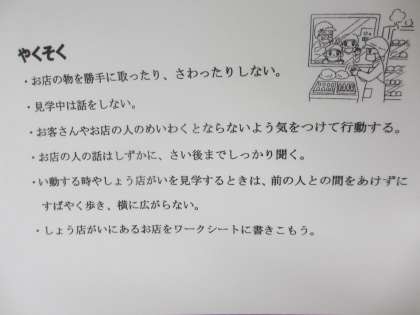 やくそく
・お店の物を勝手に取ったり、さわったりしない。
・見学中は話をしない。
・お客さんやお店の人のめいわくとならないよう気をつけて行動する。
・お店の人の話はしずかに、さい後までしっかり聞く。
・い動する時やしょう店がいを見学するときは、前の人との間をあけずに
すばやく歩き、横に広がらない。
・しょう店がいにあるお店をワークシートに書きこもう。